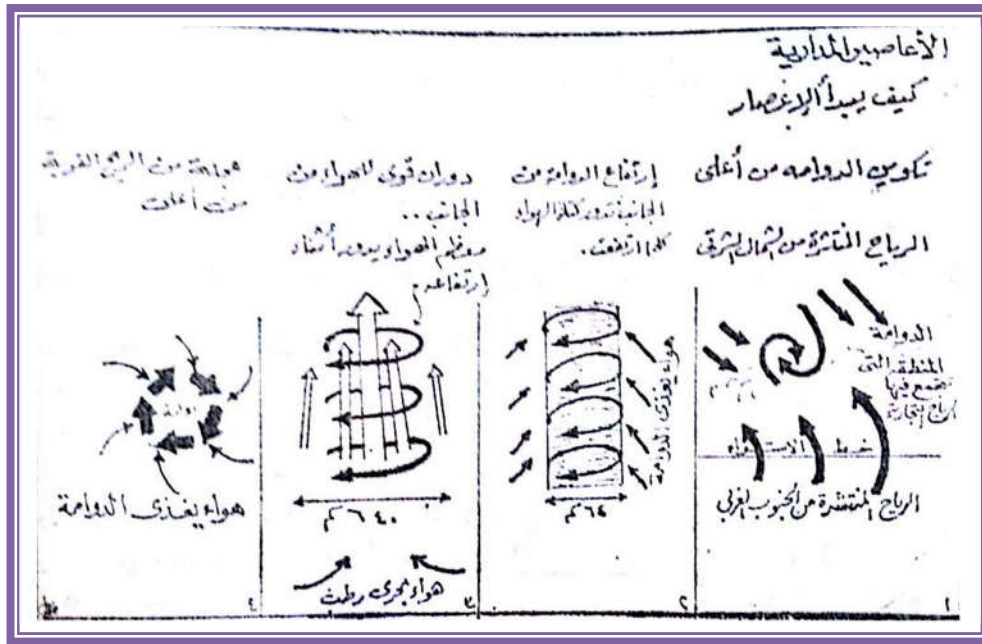 الأعاصير المدارية
كيف يبدأ الإعصار
تكوين الدوامه من أعلى
الرياح المنتشرة من الشمال الشرقى
الدوامة
المنطقة التى
تتجمع فيها
الرياح التجارية
خط الاستواء
الرياح المنتشرة من الجنوب الغربى
١
إرتفاع الدوامة من
الجانب تدور كتلة الهواء
كلما ارتفعت.
هواء يغذى الدوامة
٦٤ كم
٢
دوران قوى للهواء من
الجانب..
معظم الهواء يدور أثناء
إرتفاعه.
٦٤٠ كم
هواء بحرى رطب
٣
من الريح القوية
من أعلى
هواء يغذى الدوامة
٤